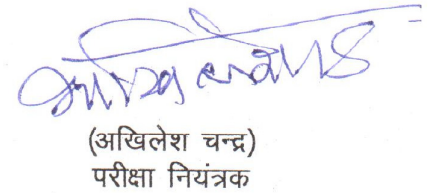 (अखिलेश चन्द्र)
परीक्षा नियंत्रक